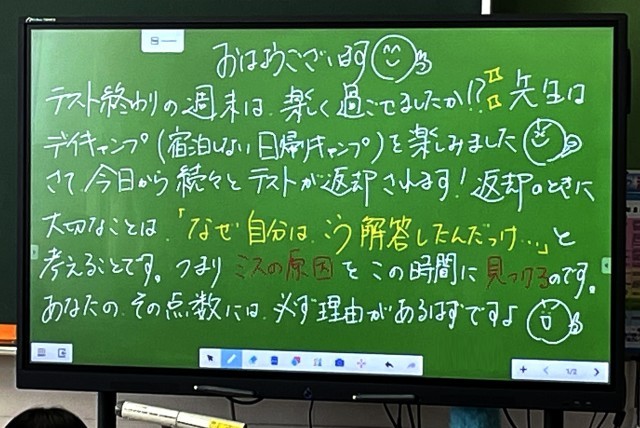 おはようございます
テスト終わりの週末は、楽しく過ごせましたか!? 先生は
デイキャンプ(宿泊しない日帰りキャンプ)を楽しみました
さて、今日から続々とテストが返却されます!返却のときに
大切なことは、「なぜ自分は、こう解答したんだっけ…」と
考えることです。つまりミスの原因をこの時間に見つけるのです。
あなたの、その点数には、必ず理由があるはずですよ
1/2